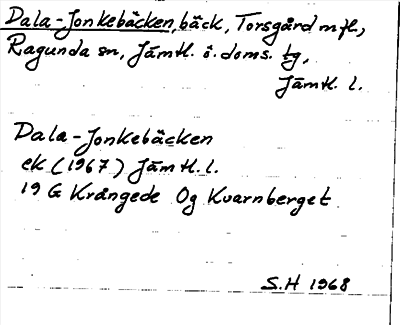 Dala-Jonkebäcken, bäck, Torsgård mfl.,
Ragunda sn, Jämtl. ö. doms. tg,
Jämtl. l.
Dala-Jonkebäcken
ek (1967) Jämtl. l.
19 G Krångede Og Kvarnberget
S.H 1968